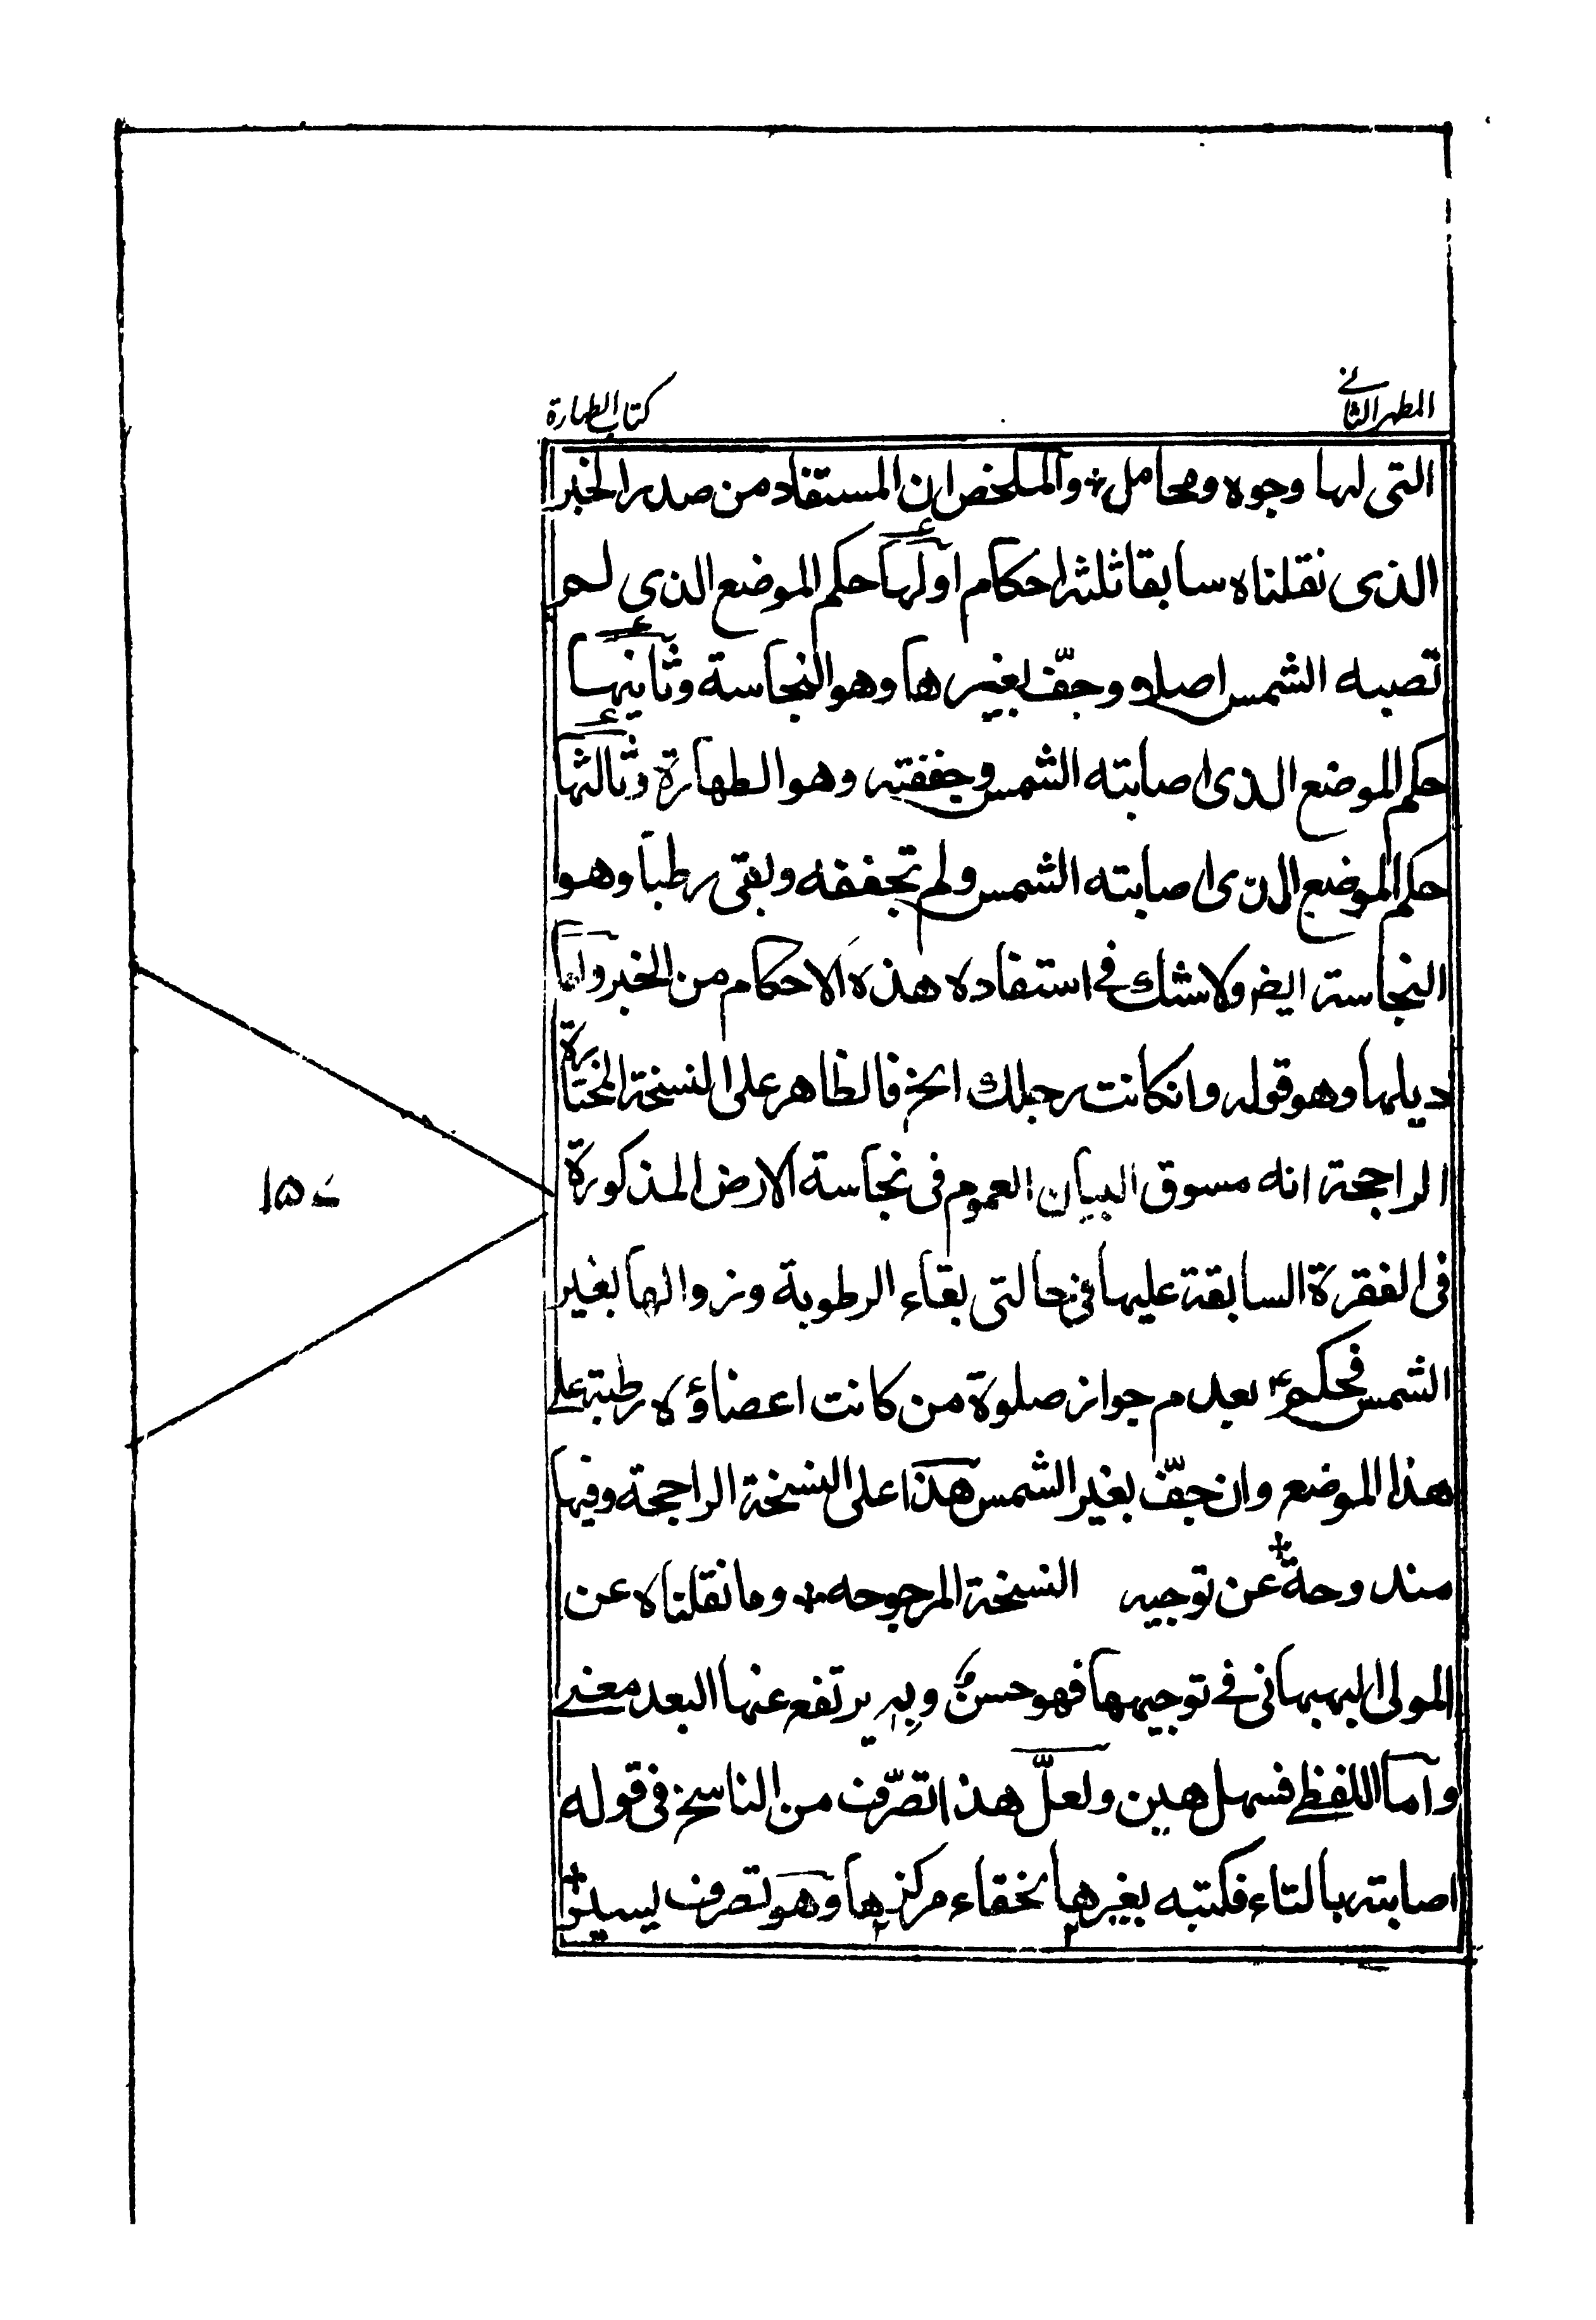 المطهر الثاني
كتاب الطهارة
التى لها وجوه ومحامل والملخص ان المستفاد من صدر الخبر
الذى نقلناه سابقا ثلثة احكام اولها حكم الموضع الذي لم
تصبه الشمس اصلا و وجفّ بغيرها وهو النجاسة وثانيها
حكم الموضع الذى اصابته الشمس وجففته وهو الطهارة وثالثها
حكم الموضع الذى اصابته الشمس ولم تجففه وبقى رطبا وهو
النجاسة ايضا ولا شك في استفاده هذه الاحكام من الخبر واما
ذيلها وهو قوله وانكانت رجلك الخ فالظاهر على النسخة المختارة
الراجحة انه مسوق البيان العموم فى نجاسة الارض المذكورة
فى الفقرة السابقة عليها في حالتى بقاء الرطوبة وزوالها بغير
الشمس فحكم ع بعدم جواز صلوة من كانت اعضاؤه رطبة على
هذا الموضع وان جفّ بغير الشمس هذا على النسخة الراجحة وفيها
مندوحة عن توجيه النسخة المرجوحه وما نقلناه عن
المولى البهبهانى في توجيهها فهو حسن وبه يرتفع عنها البعد معنى
واما اللفظ فسهل هين ولعلّ هذا تصرّف من الناسخ فى قوله
اصابته بالتاء فكتبه بغيرها لخفاء مركزها وهو تصرف يسير
١٥